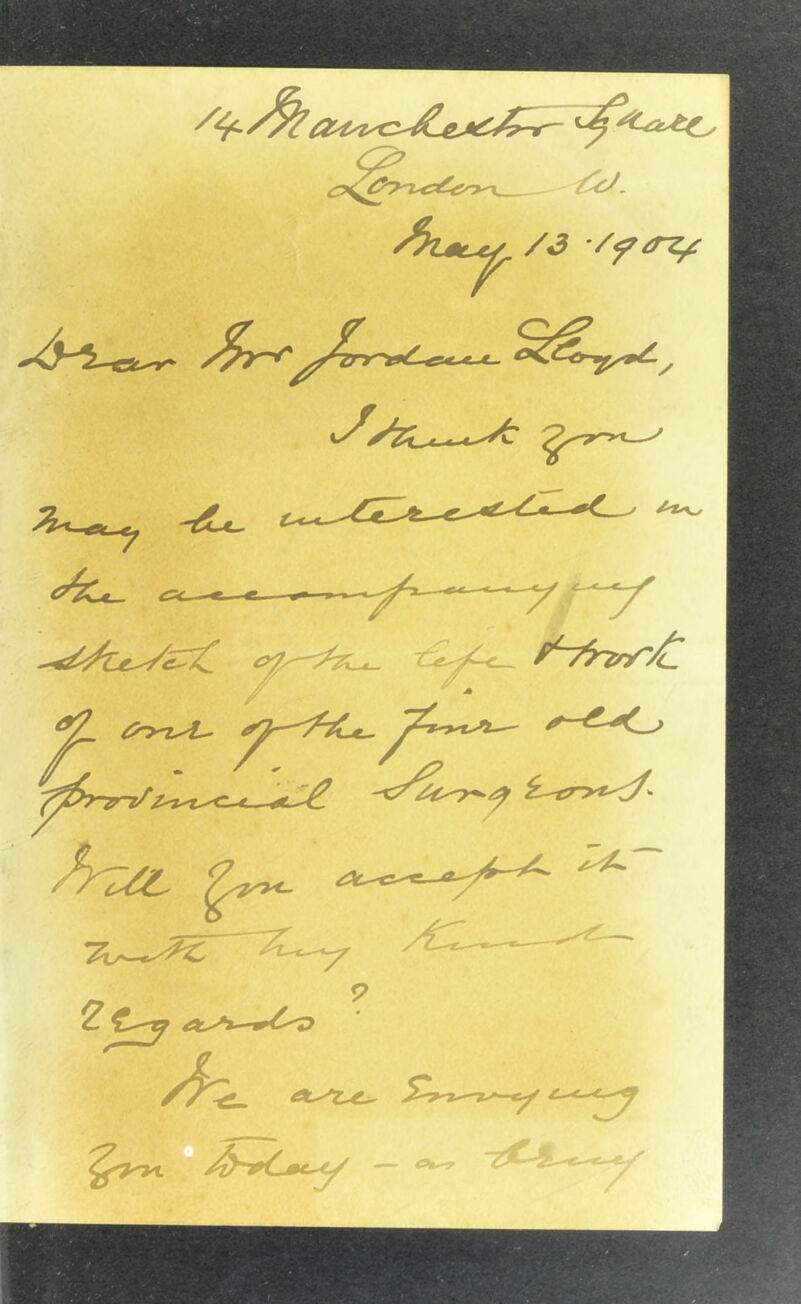 14 Manchester Square
London W.
May 13 · 1904
Dear Mr Jordan Lloyd,
I think you
may be interested in
the accompanying
sketch of the life & work
of one of the fine old
provincial Surgeons.
Will you accept it
with my kind
regards?
We are envying
you today - as being